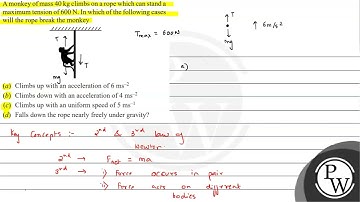 A monkey of mass 40 kg climbs on a rope which can stand a
maximum tension of 600 N. In which of the following cases
will the rope break the monkey
T
T
mg
Tmax = 600N
T
mg
↑ 6 m/s²
a)
(a) Climbs up with an acceleration of 6 ms⁻²
(b) Climbs down with an acceleration of 4 ms⁻²
(c) Climbs up with an uniform speed of 5 ms⁻¹
(d) Falls down the rope nearly freely under gravity?
Key Concepts :- 2nd & 3rd law of
Newton
2nd → Fnet = ma
3rd → i) Force occurs in pair
ii) Force acts on different
bodies
P
W